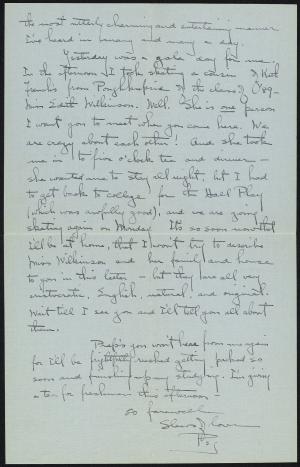 the most utterly charming and entertaining manner
I've heard in many and many a day.
Yesterday was a gala day for me.
In the afternoon I took skating a cousin of Kirk
French's from Poughkeepsie of the class of '09 -
Miss Edith Wilkinson. Well. She is one person
I want you to meet when you come here. We
are crazy about each other! And she took
me in to five o'clock tea and dinner -
she wanted me to stay all night, but I had
to get back to college for the Hall Play
(which was awfully good), and we are going
skating again on Monday. It's so soon now that
I'll be at home, that I won't try to describe
Miss Wilkinson and her family and house
to you in this letter - but they are all very
aristocratic, English, natural, and original.
Wait till I see you and I'll tell you all about
them.
you won't hear from me again
for I'll be frightfully rushed getting packed so
soon and finishing up my studying. I'm giving
a tea for freshmen this afternoon -
so farewell
Peg